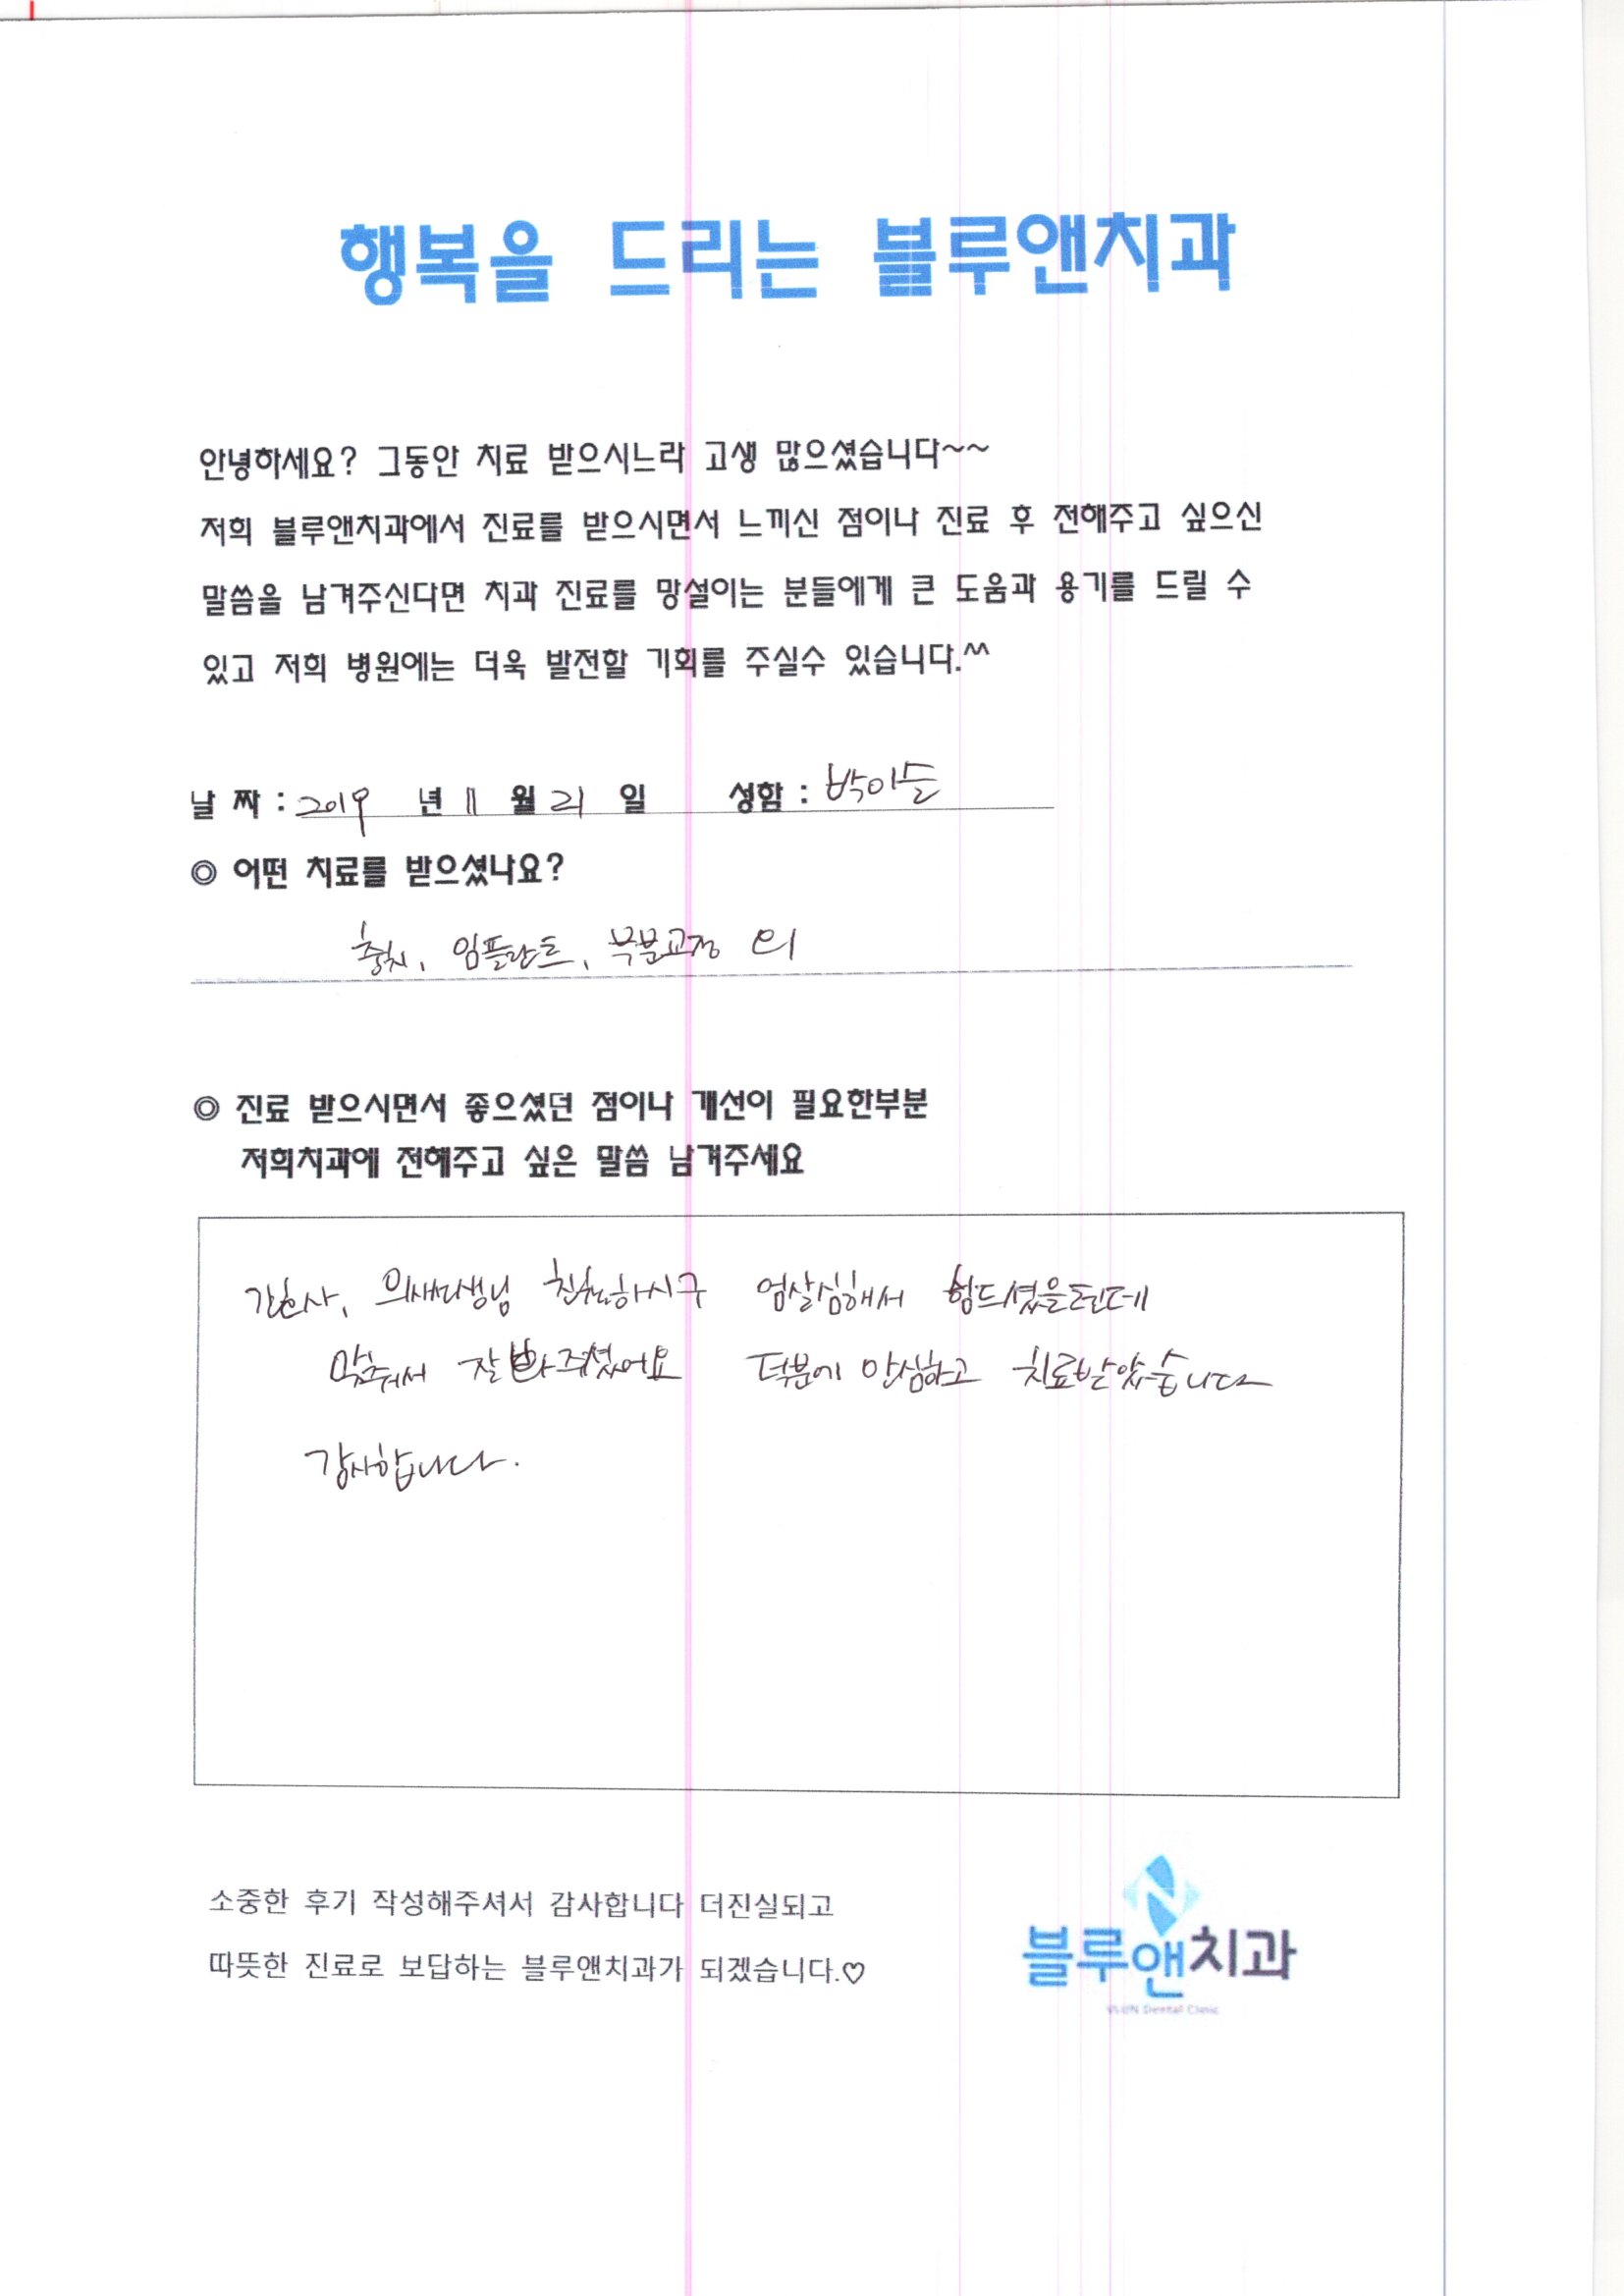 행복을 드리는 블루앤치과
안녕하세요? 그동안 치료 받으시느라 고생 많으셨습니다~~
저희 블루앤치과에서 진료를 받으시면서 느끼신 점이나 진료 후 전해주고 싶으신
말씀을 남겨주신다면 치과 진료를 망설이는 분들에게 큰 도움과 용기를 드릴 수
있고 저희 병원에는 더욱 발전할 기회를 주실수 있습니다.^^
날 짜 : 2019 년 11 월 21 일 성함 : 박이들
◎ 어떤 치료를 받으셨나요?
충치, 임플란트, 부분교정
◎ 진료 받으시면서 좋으셨던 점이나 개선이 필요한부분
저희치과에 전해주고 싶은 말씀 남겨주세요
간호사, 의새선생님 친절하시구 엄살심해서 힘드셨을텐데
맞춰서 잘 봐주셨어요 덕분에 안심하고 치료받았습니다
감사합니다.
소중한 후기 작성해주셔서 감사합니다 더진실되고
따뜻한 진료로 보답하는 블루앤치과가 되겠습니다.♡
블루앤치과
Dental Clinic